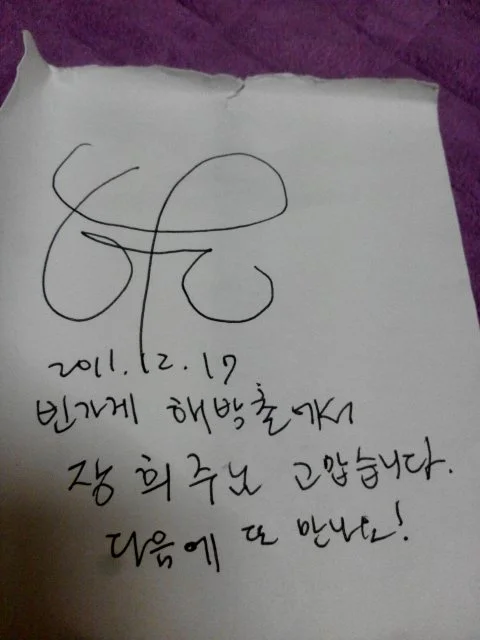 2011.12.17
빈가게 해방촌에서
장희주님 고맙습니다.
다음에 또 만나요!